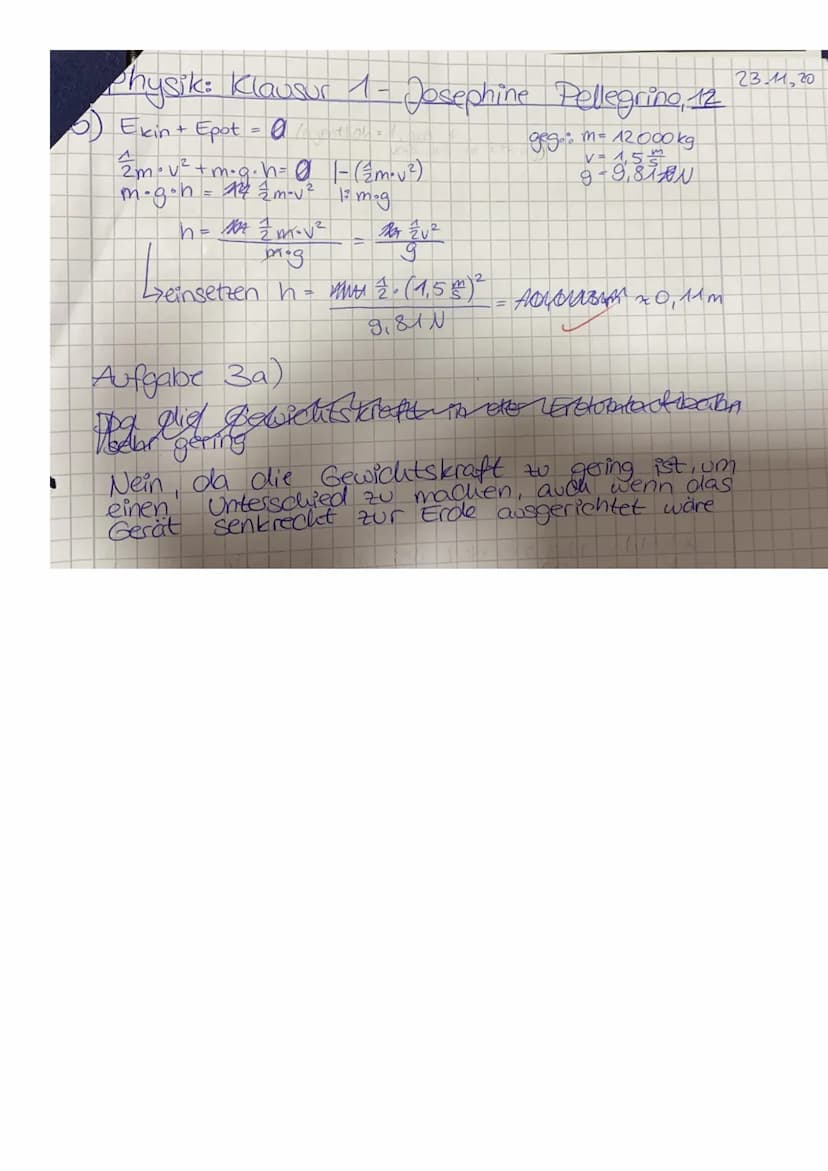 Physik: Klausur 1 - Josephine Pellegrino, 12
23.11.20
b) Ekin + Epot = 0
geg.: m = 12000 kg
v = 1,5 m/s
g = 9,81 N
1/2 m · v² + m · g · h = 0 |-(1/2 m · v²)
m · g · h = 1/2 m · v² |: m · g
h = 1/2 m · v² / m · g = 1/2 v² / g
↳ einsetzen h = 1/2 · (1,5 m/s)² / 9,81 N = ≈ 0,11 m
Aufgabe 3a)
die Gewichtskraft in der
sehr gering
Nein, da die Gewichtskraft zu gering ist, um
einen Unterschied zu machen, auch wenn das
Gerät senkrecht zur Erde ausgerichtet wäre